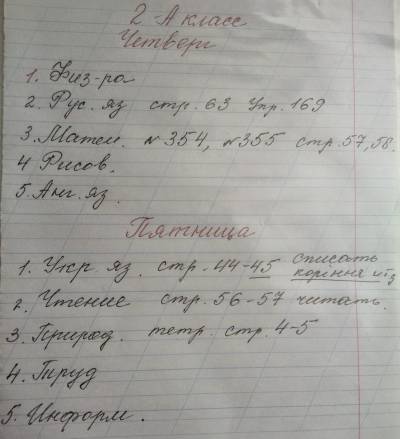 2-А класс
Четверг
1. Физ-ра
2. Рус. яз стр. 63 Упр. 169
3. Матем. №354, №355 стр. 57, 58.
4 Рисов.
5. Анг. яз.
Пятница
1. Укр. яз. стр. 44-45 списать
коріння и т.з
2. Чтение стр. 56-57 читать.
3. Природ. тетр. стр. 4-5
4. Труд
5. Информ.